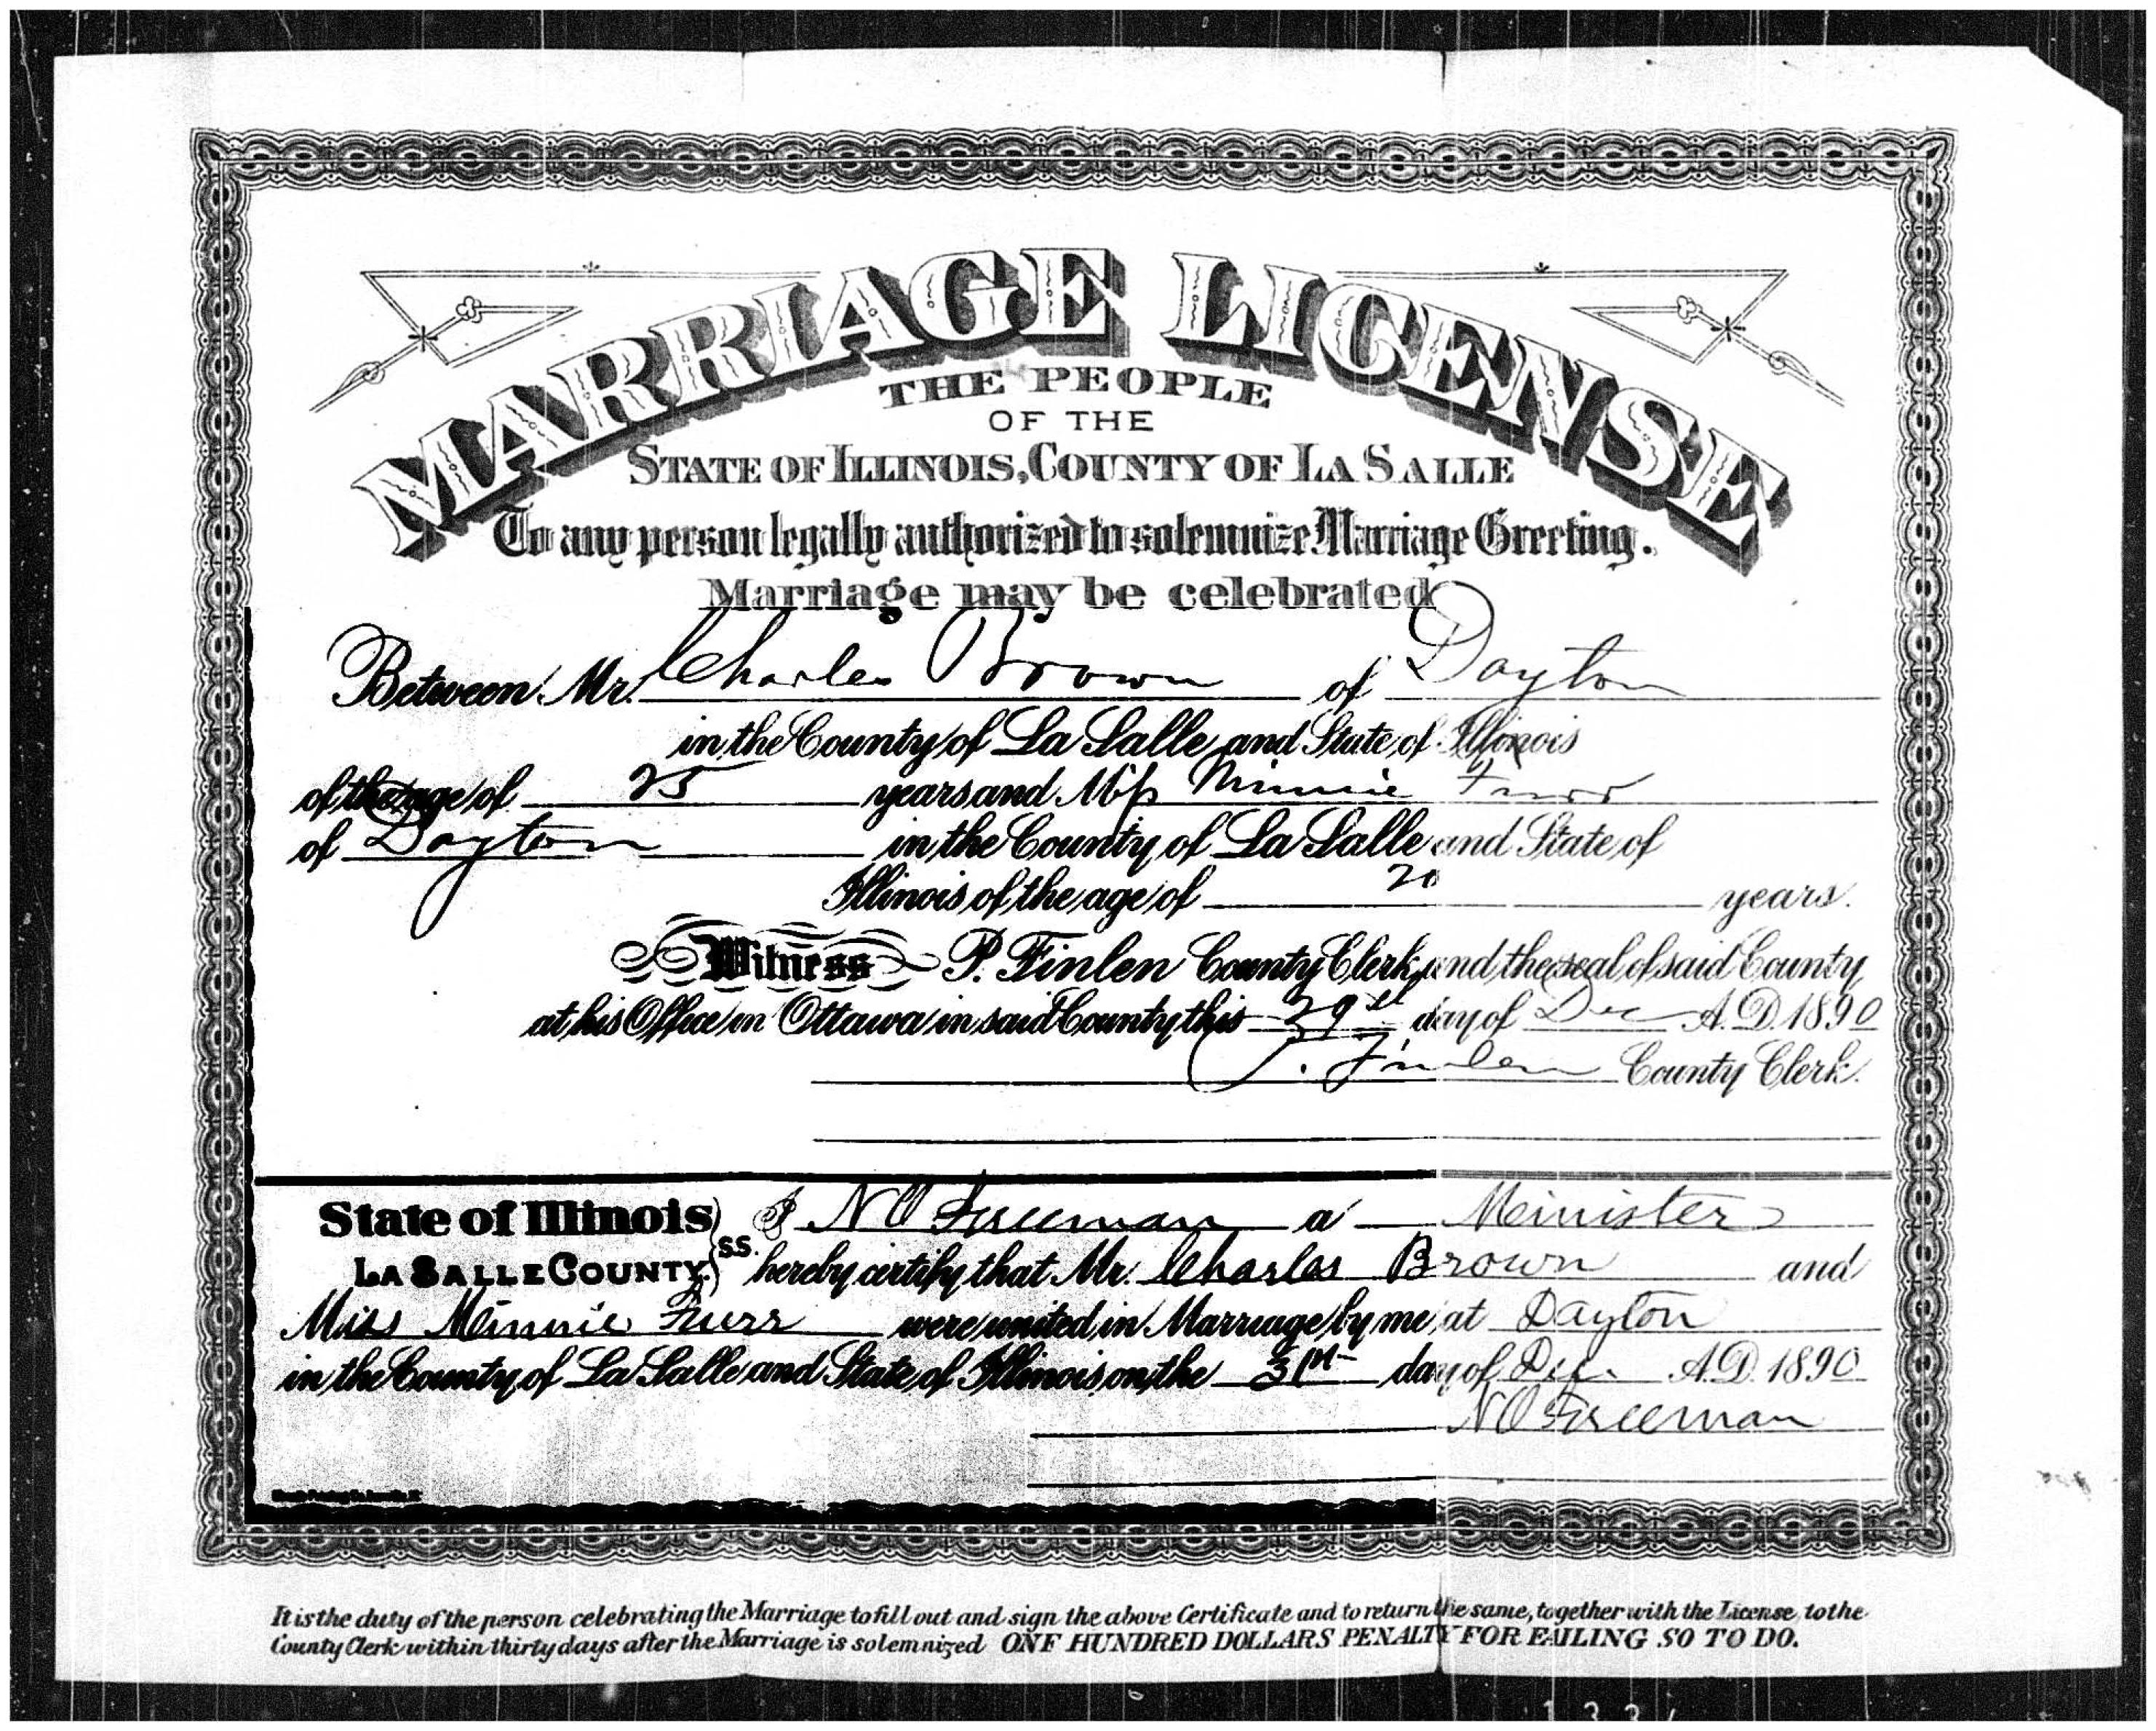 MARRIAGE LICENSE
THE PEOPLE
OF THE
STATE OF ILLINOIS, COUNTY OF LA SALLE
To any person legally authorized to solemnize Marriage Greeting.
Marriage may be celebrated
Between Mr. Charles Brown of Dayton
in the County of La Salle and State of Illinois
of the age of 25 years and Miss Minnie Furr
of Dayton in the County of La Salle and State of
Illinois of the age of 20 years.
Witness P. Finlen County Clerk and the seal of said County
at his Office in Ottawa in said County this 29th day of Dec A.D. 1890
P. Finlen County Clerk.
State of Illinois I N O Freeman a Minister
LA SALLE COUNTY. SS. hereby certify that Mr. Charles Brown and
Miss Minnie Furr were united in Marriage by me at Dayton
in the County of La Salle and State of Illinois on the 31st day of Dec. A.D. 1890
N O Freeman
It is the duty of the person celebrating the Marriage to fill out and sign the above Certificate and to return the same, together with the License, to the
County Clerk within thirty days after the Marriage is solemnized ONE HUNDRED DOLLARS PENALTY FOR FAILING SO TO DO.